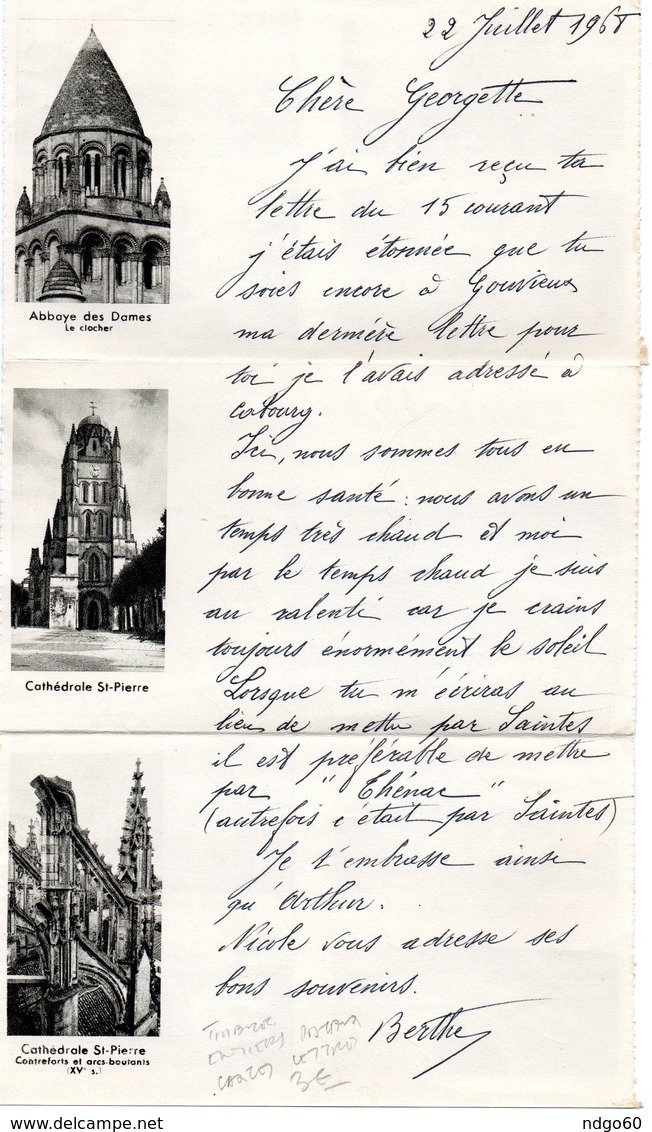 22 Juillet 1968
Chère Georgette
J'ai bien reçu ta
lettre du 15 courant
j'étais étonnée que tu
soies encore à Gouvieux
ma dernière lettre pour
toi je l'avais adressé à
Cabourg.
Ici, nous sommes tous en
bonne santé : nous avons un
temps très chaud et moi
par le temps chaud je suis
au ralenti car je crains
toujours énormément le soleil
Lorsque tu m'écriras au
lieu de mettre par Saintes
il est préférable de mettre
par "Thénac"
(autrefois c'était par Saintes)
Je t'embrasse ainsi
qu'Arthur.
Nicole vous adresse ses
bons souvenirs.
Berthe
Abbaye des Dames
Le clocher
Cathédrale St-Pierre
Cathédrale St-Pierre
Contreforts et arcs-boutants
(XVe s.)
ENTIERS
3€
ndgo60